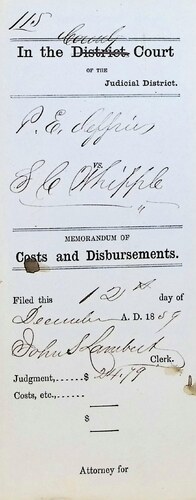 115
County
In the District Court
OF THE
Judicial District.
P. E. Jeffries
VS.
S C Whipple
"
MEMORANDUM OF
Costs and Disbursements.
Filed this 12th day of
December A. D. 1859
John S Lambert
Clerk.
Judgment,......$ 24.79
Costs, etc.,......
$
$
Attorney for